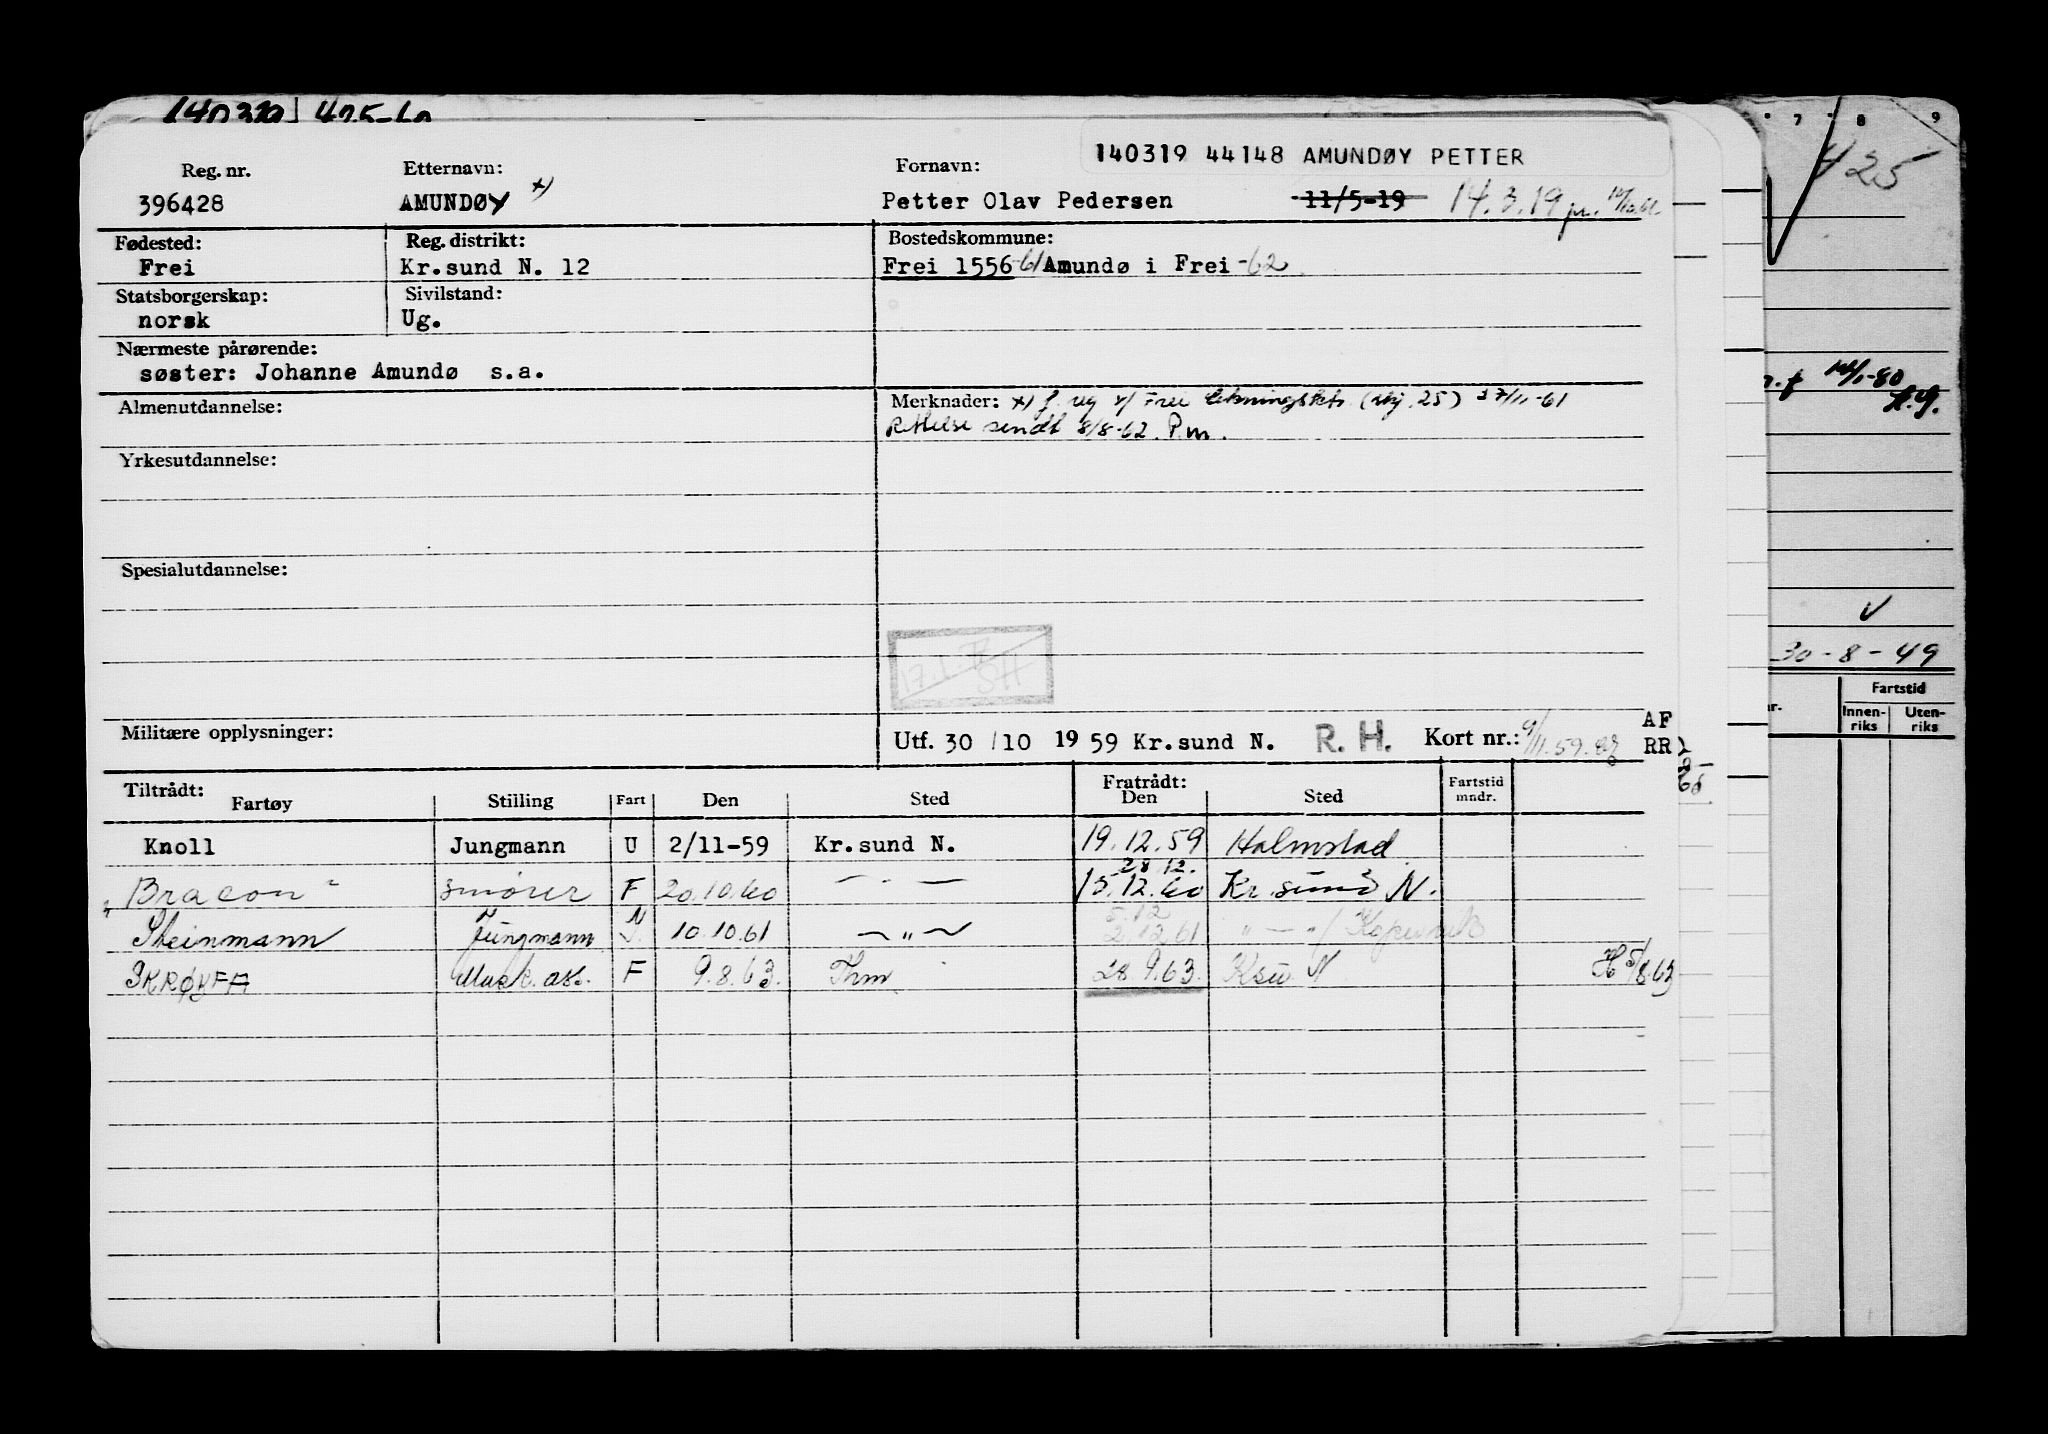 140319 44148 AMUNDØY PETTER
Reg. nr. Etternavn: Fornavn:
396428 AMUNDØY x) Petter Olav Pedersen 11/5-19 14.3.19
Fødested: Reg. distrikt: Bostedskommune:
Frei Kr.sund N. 12 Frei 1556 -61 Amundø i Frei -62
Statsborgerskap: Sivilstand:
norsk Ug.
Nærmeste pårørende:
søster: Johanne Amundø s.a.
Almenutdannelse: Merknader: x) f. reg v/ Frei 27/11-61
Rettelse sendt 8/8-62. P.m.
Yrkesutdannelse:
Spesialutdannelse:
Militære opplysninger: Utf. 30/10 1959 Kr.sund N. R. H. Kort nr.: 9/11.59. AF
RR
Tiltrådt: Fratrådt: Fartstid
Fartøy Stilling Fart Den Sted Den Sted mndr.
Knoll Jungmann U 2/11-59 Kr.sund N. 19.12.59 Halmstad
28.12.
"Bracon" Smører F 20.10.60 — " — 15.12.60 Kr.sund N.
5.12
Steinmann Jungmann N 10.10.61 — " — 2.12.61 " — " / Kopervik
SKRØYFA Mask. ass. F 9.8.63. Thm 28.9.63. Ksu N H 5/8.63
7 8 9
425
14/1-80
30-8-49
Fartstid
Innen- Uten-
riks riks